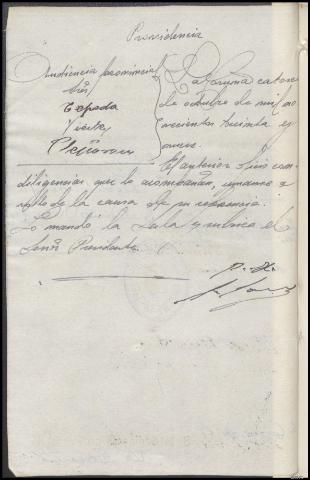 Providencia
Audiencia provincial
Sres
Tejada
Vicite
La Coruña catorce
de octubre de mil no
vecientos treinta y
El anterior oficio con
diligencias que lo acompañan, unanse a
rollo de la causa de su referencia.
Lo mandó la Sala y rubrica el
Señor Presidente.